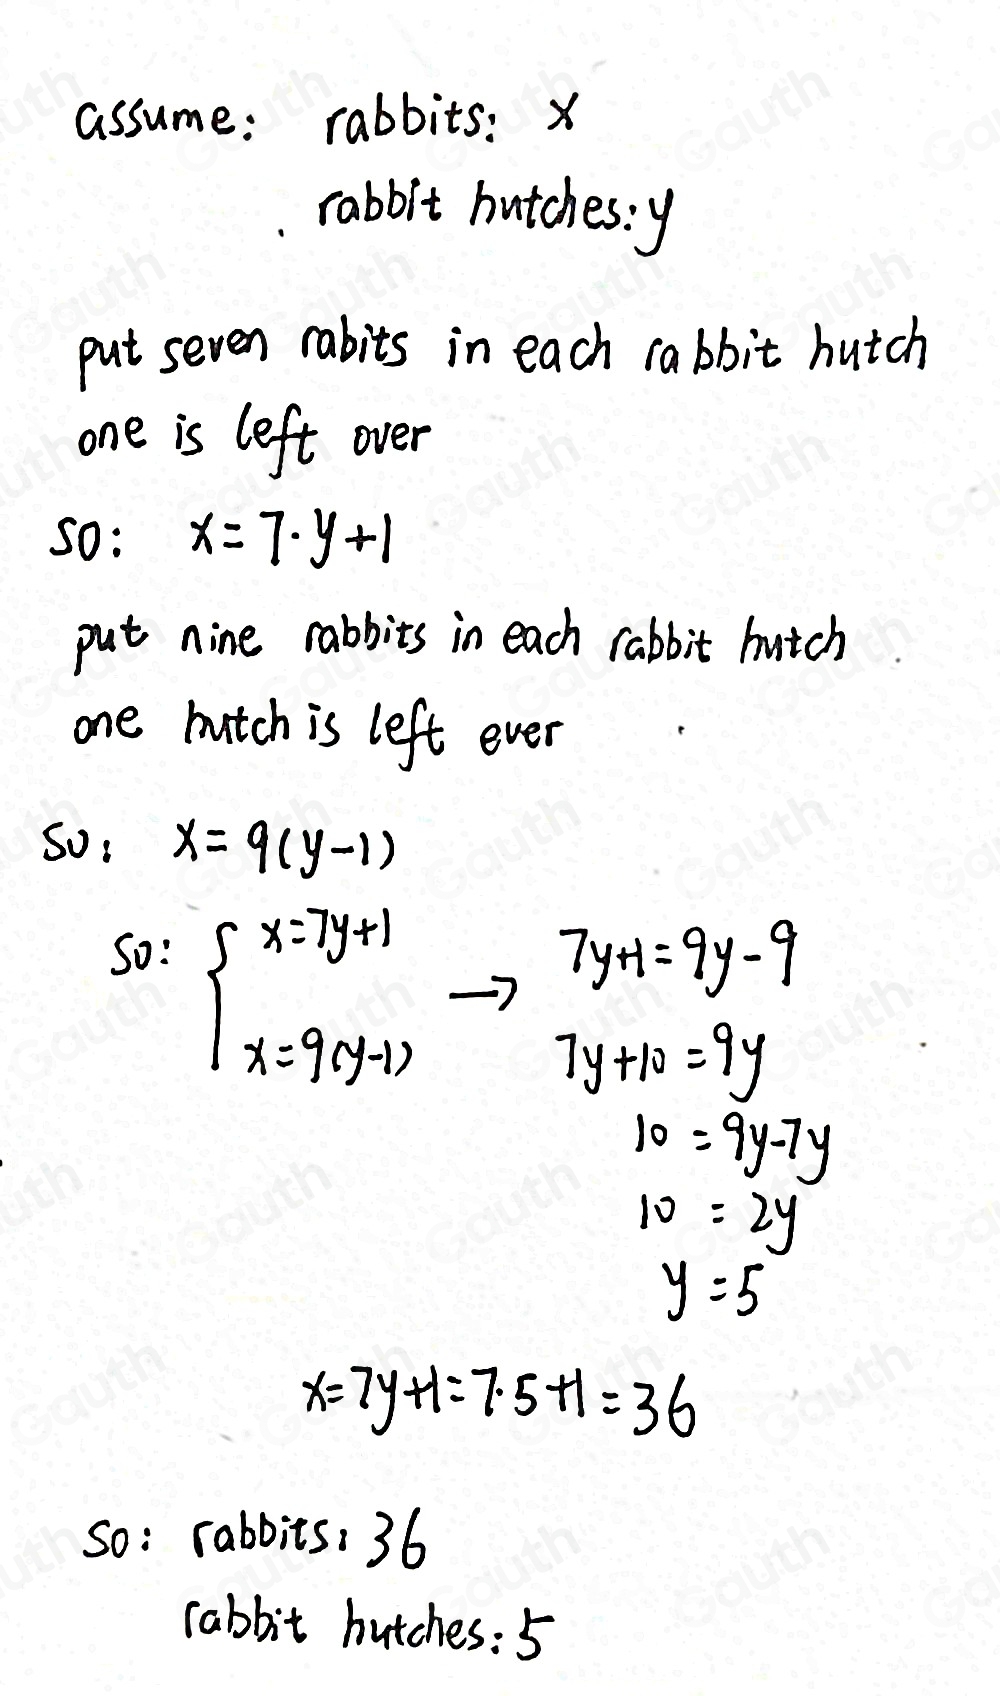 assume: rabbits: x
rabbit hutches: y
put seven rabits in each rabbit hutch
one is left over
so: x=7·y+1
put nine rabbits in each rabbit hutch
one hutch is left ever
so: x=9(y-1)
so: { x=7y+1 → 7y+1=9y-9
x=9(y-1) 7y+10=9y
10=9y-7y
10=2y
y=5
x=7y+1=7·5+1=36
so: rabbits: 36
rabbit hutches: 5
Gauth